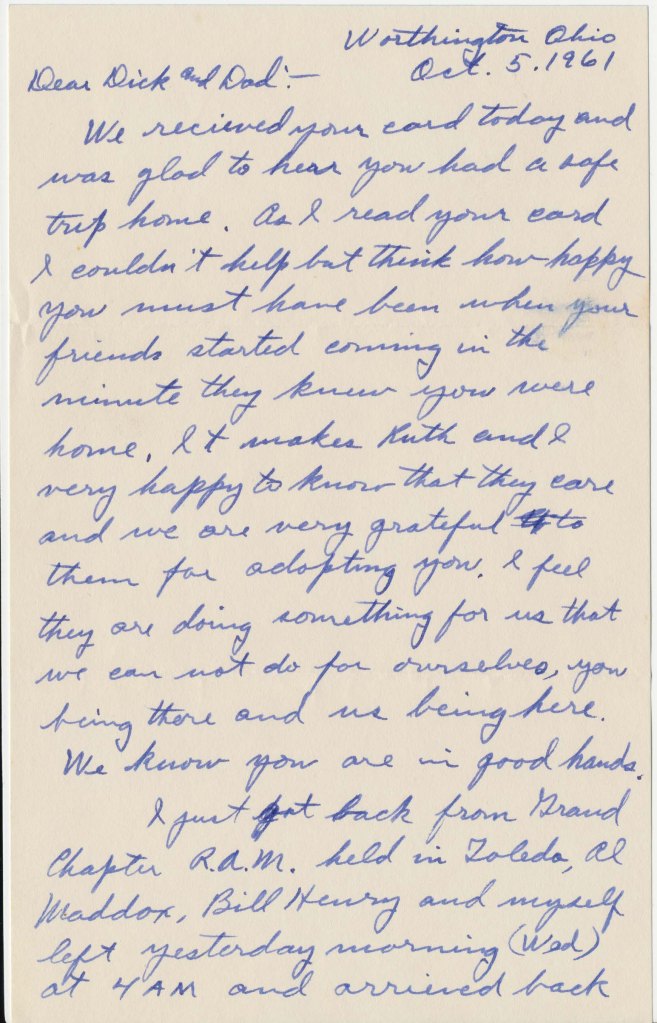 Worthington Ohio
Oct. 5. 1961
Dear Dick and Dad:—
We recieved your card today and
was glad to hear you had a safe
trip home. As I read your card
I couldn't help but think how happy
you must have been when your
friends started coming in the
minute they knew you were
home. It makes Ruth and I
very happy to know that they care
and we are very grateful to
them for adopting you. I feel
they are doing something for us that
we can not do for ourselves, you
being there and us being here.
We know you are in good hands.
I just got back from Grand
Chapter R.A.M. held in Toledo, Al
Maddox, Bill Henry and myself
left yesterday morning (Wed)
at 4 AM and arrived back